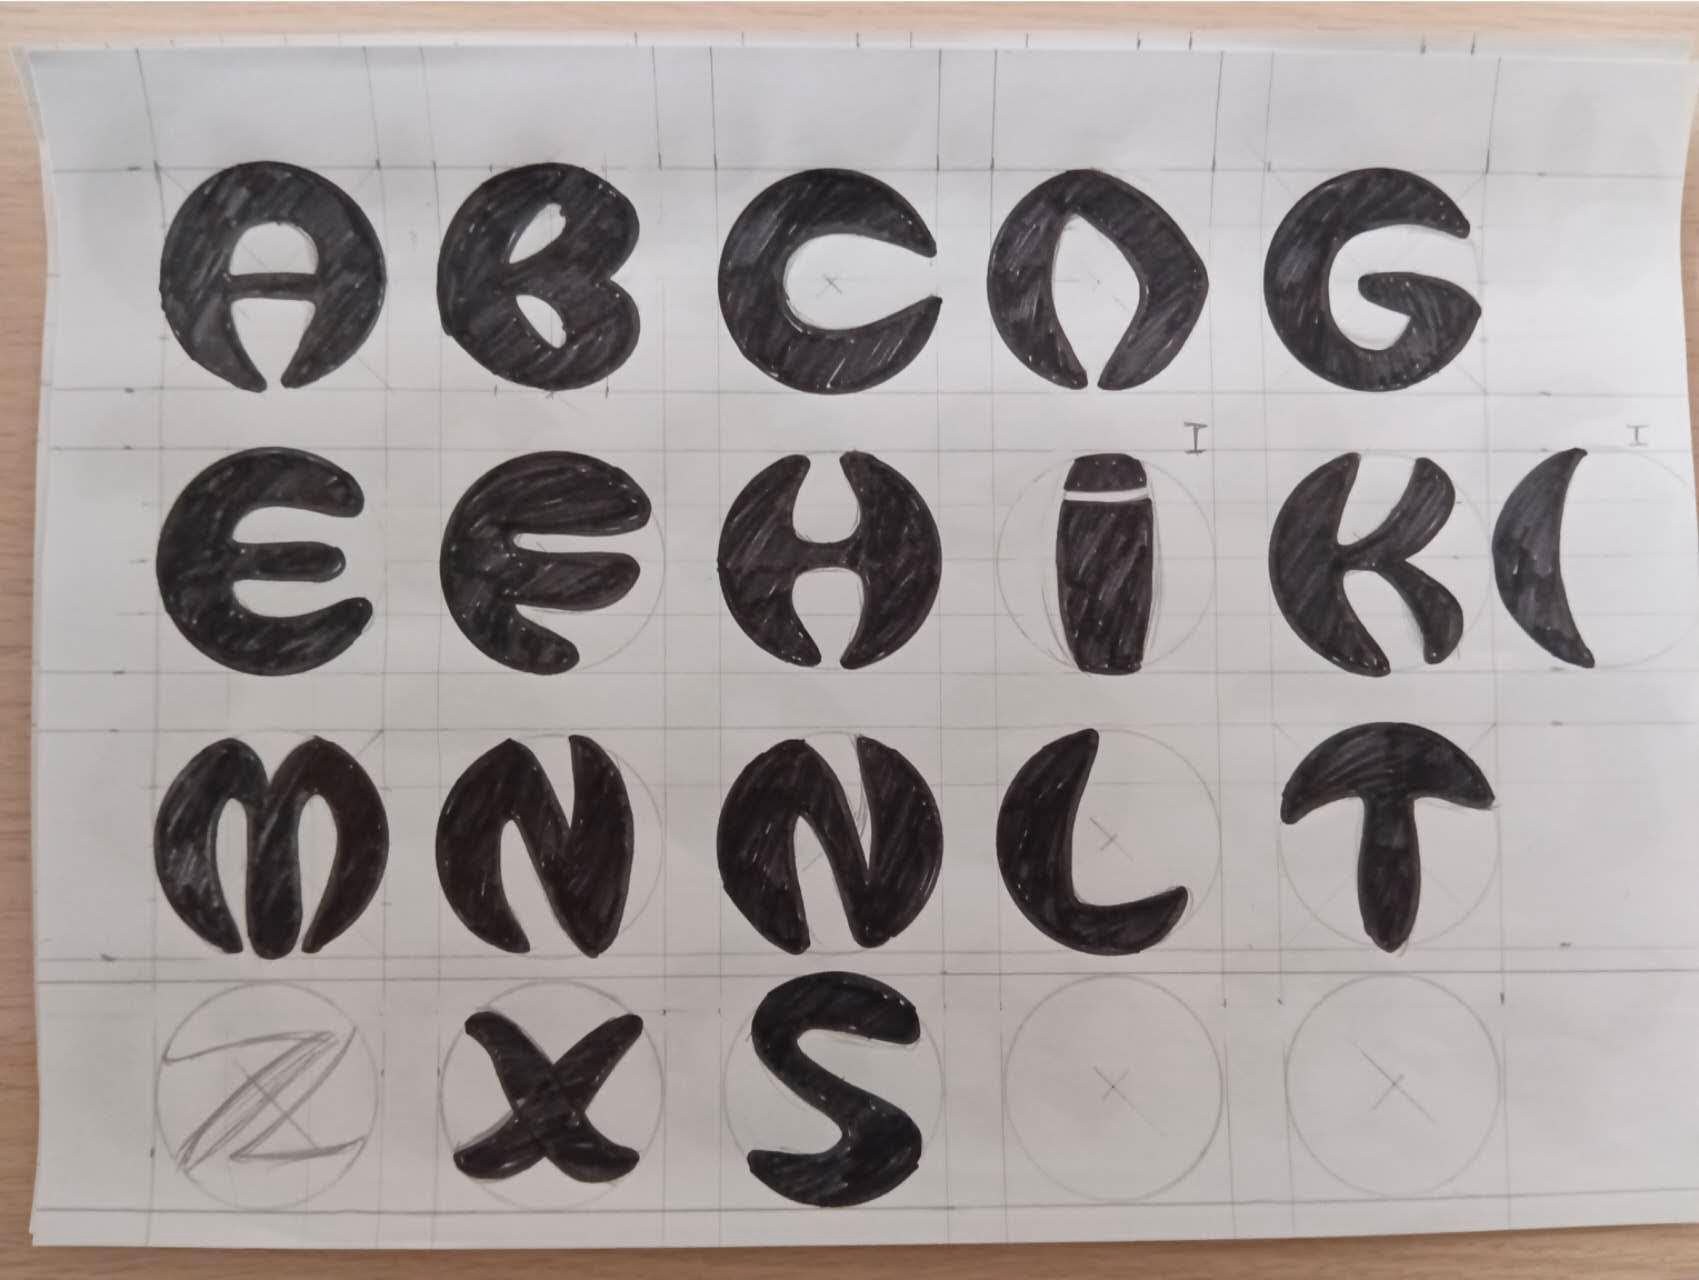 A B C Λ G
I I
E F H I K (
M N N L T
Z X S